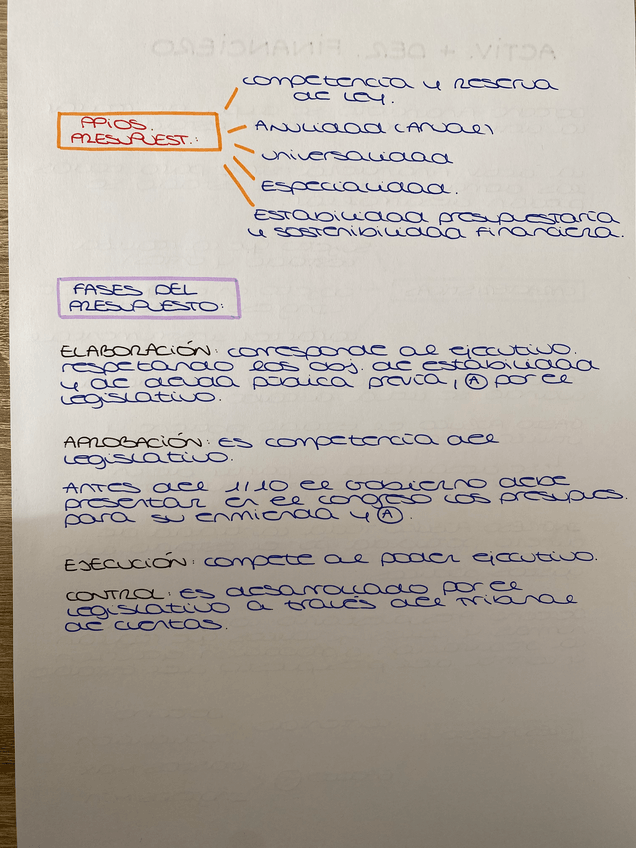 PPIOS.
PRESUPUEST.:
competencia y reserva
de ley.
Anualidad (Anual)
universalidad
Especialidad.
Estabilidad presupuestaria
y sostenibilidad financiera.
FASES DEL
PRESUPUESTO:
ELABORACIÓN: corresponde al ejecutivo.
respetando los obj. de estabilidad
y de deuda pública previa, Ⓐ por el
legislativo.
APROBACIÓN: Es competencia del
legislativo.
Antes del 1/10 el Gobierno debe
presentar en el congreso los presupues.
para su enmienda y Ⓐ.
EJECUCIÓN: compete al poder ejecutivo.
CONTROL: Es desarrollado por el
legislativo a través del Tribunal
de cuentas.